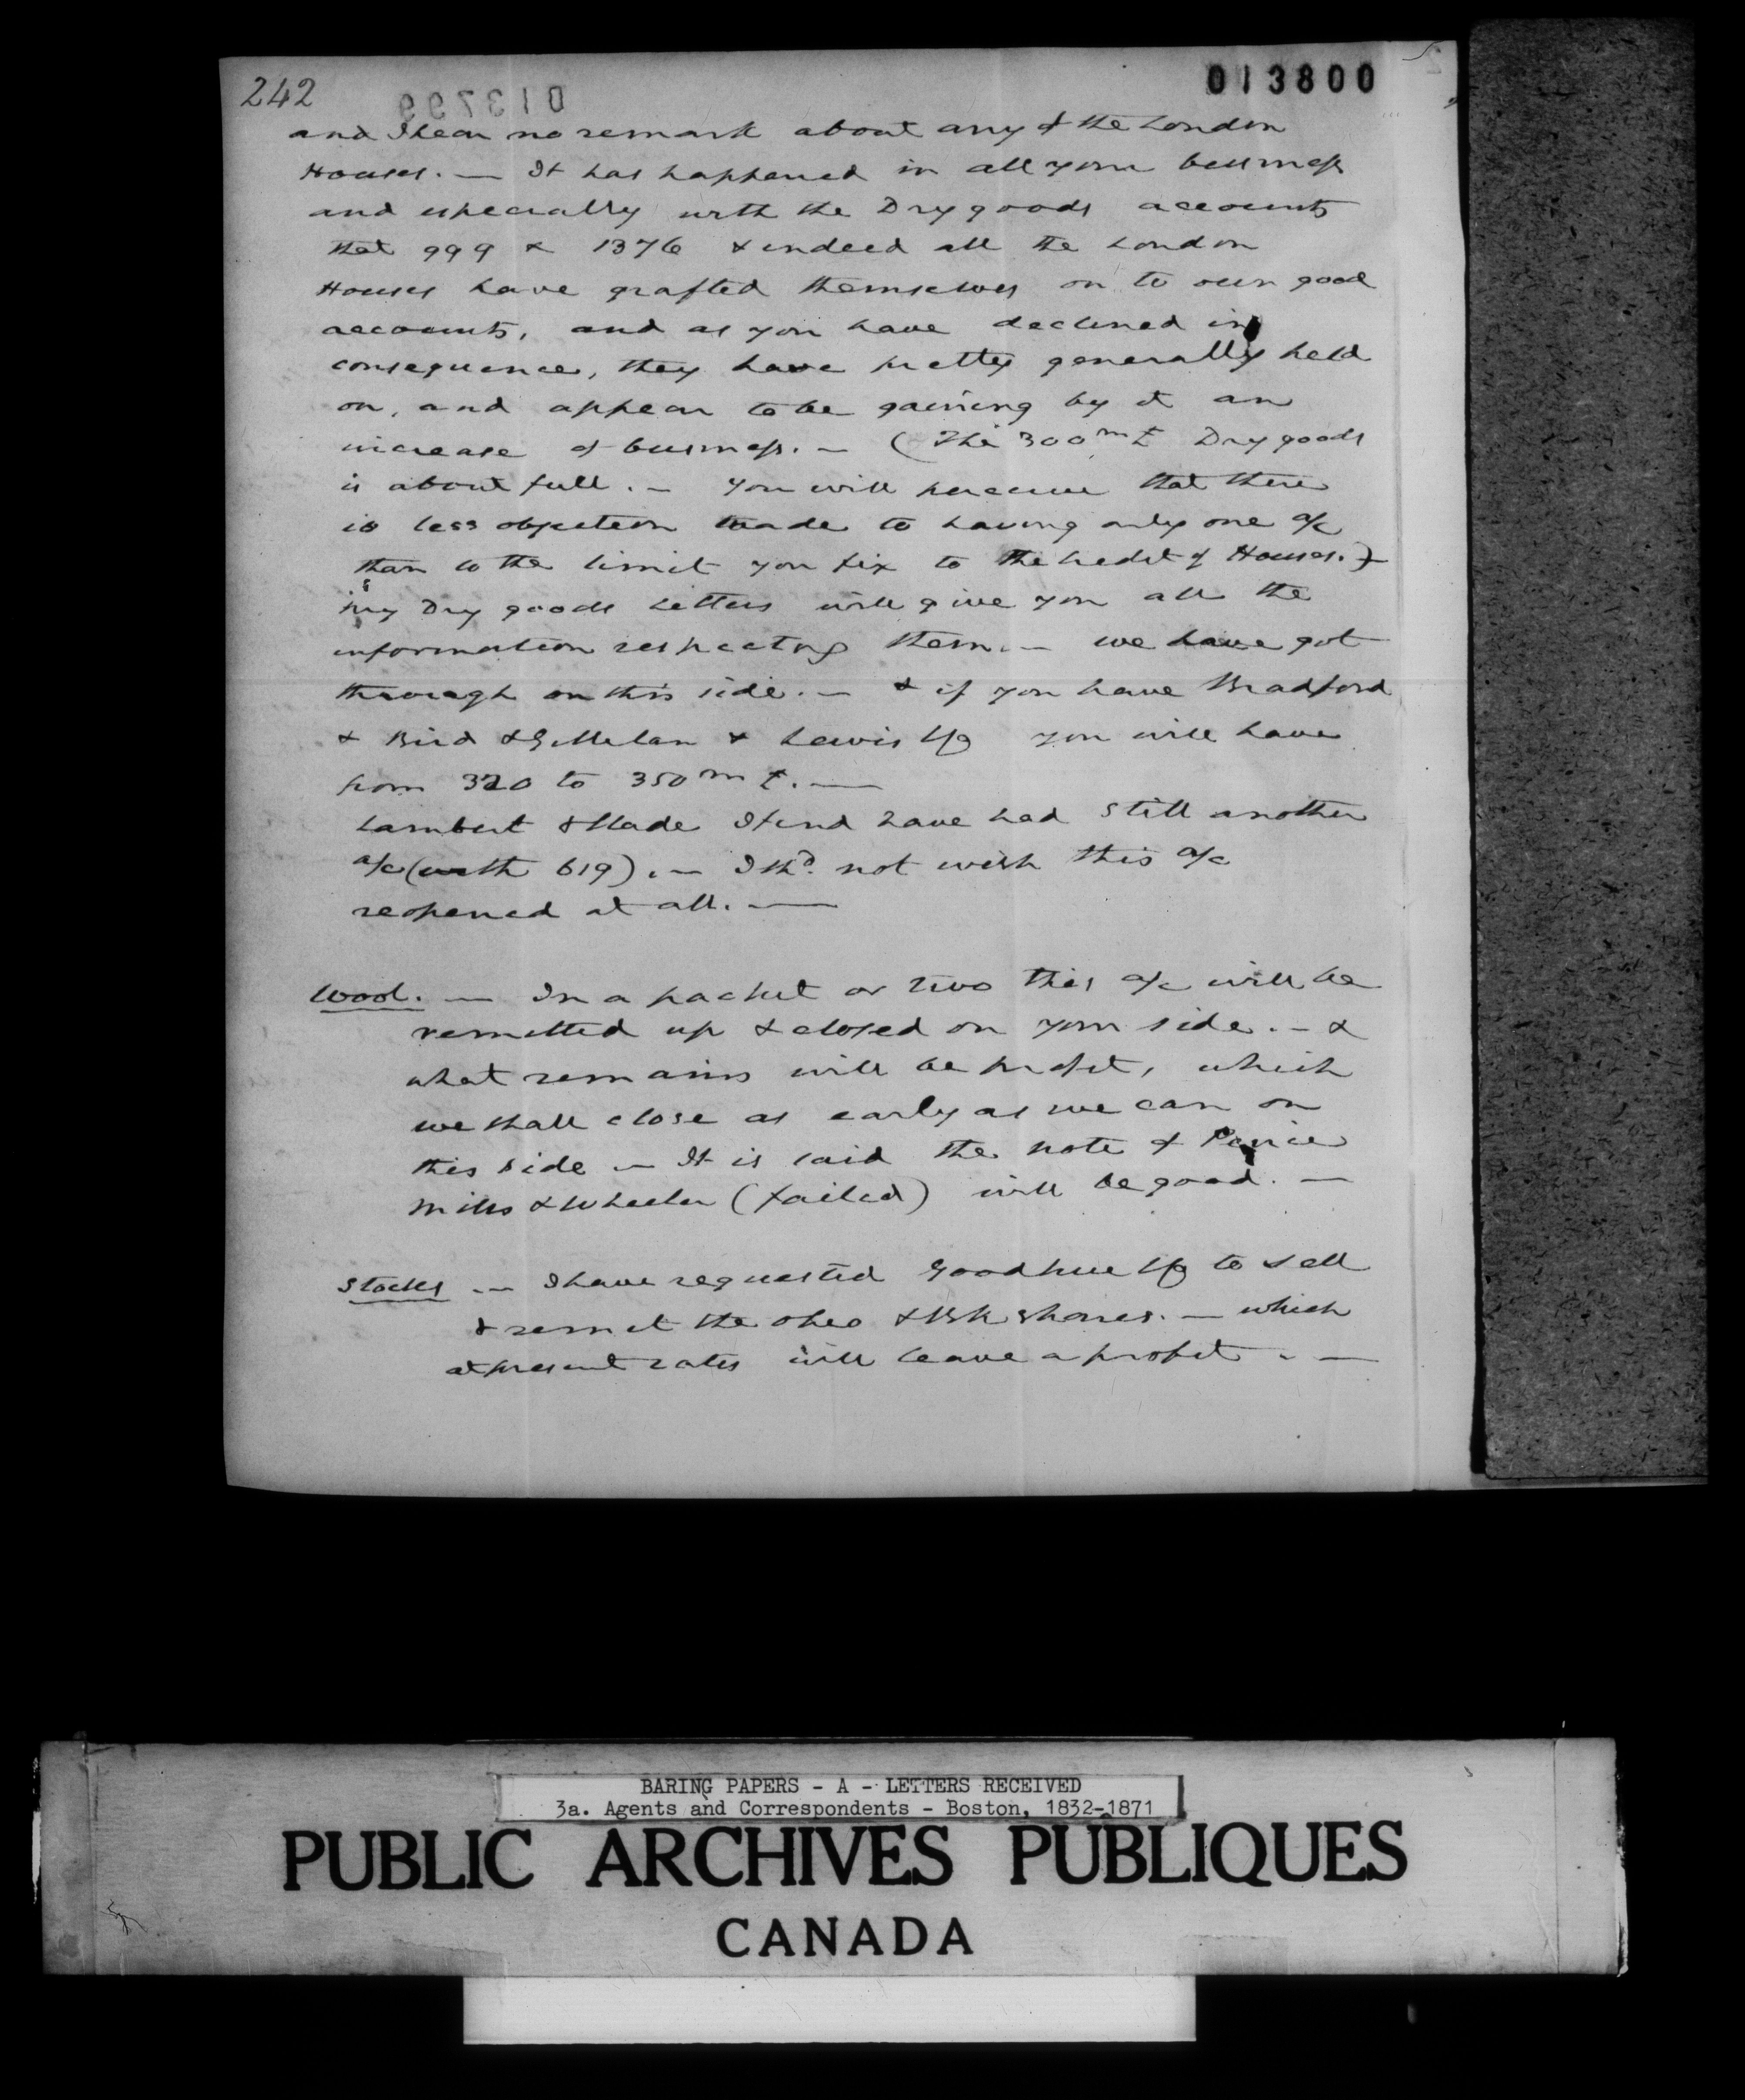 242
013799
013800
and I hear no remark about any of the London
Houses. — It has happened in all your business
and especially with the Dry goods accounts
that 999 & 1376 & indeed all the London
Houses have grafted themselves on to our good
accounts, and as you have declined in
consequence, they have pretty generally held
on, and appear to be gaining by it an
increase of business. — (The 300 m £ Dry goods
is about full. — You will perceive that there
is less objection made to having only one a/c
than to the limit you fix to the credit of Houses.)
My Dry goods letters will give you all the
information respecting them. — we have got
through on this side. — & if you have Bradford
& Bird & & Lewis Co you will have
from 320 to 350 m £. —
Lambert & Slade I find have had still another
a/c (with 619). — I shd. not wish this a/c
reopened at all. —
Wool. — In a packet or two this a/c will be
remitted up & closed on your side. — &
what remains will be profit, which
we shall close as early as we can on
this side — It is said the note of
Mills & Wheeler (failed) will be good. —
Stocks — I have requested Goodhue Co to sell
& remit the Ohio & Bk shares. — which
at present rates will leave a profit. —
BARING PAPERS - A - LETTERS RECEIVED
3a. Agents and Correspondents - Boston, 1832-1871
PUBLIC ARCHIVES PUBLIQUES
CANADA